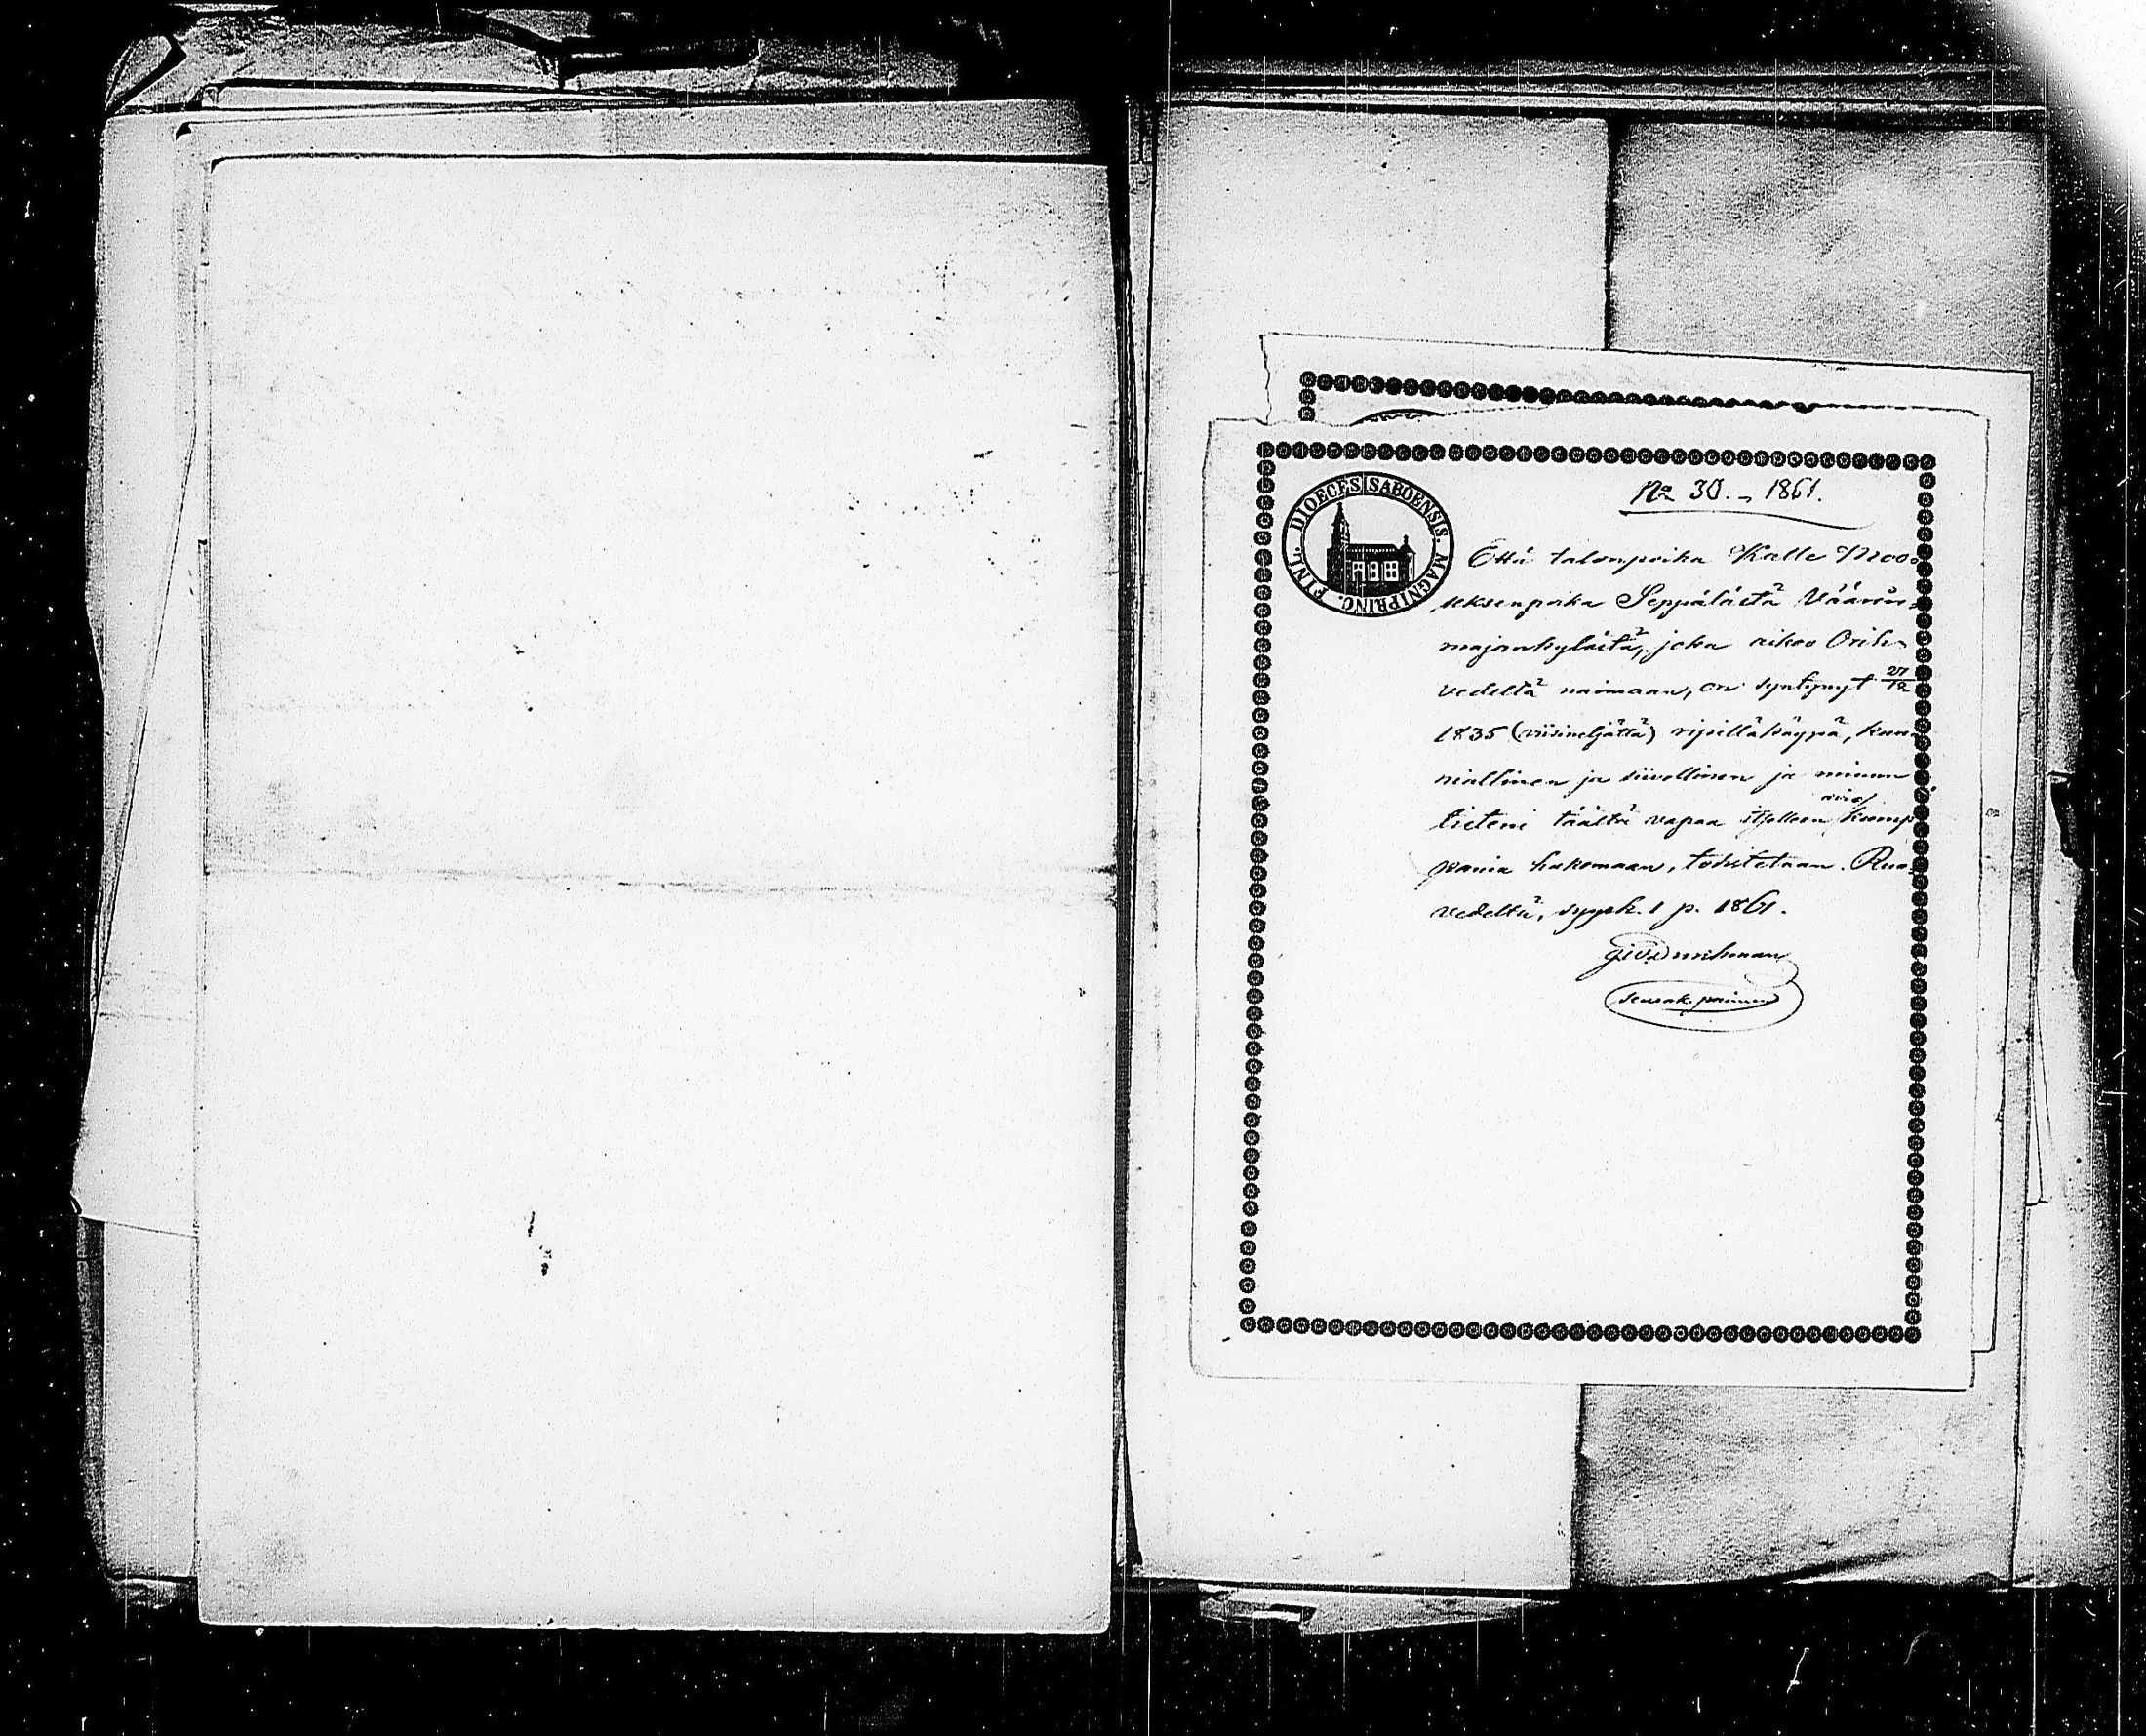 DIOECES SABOENSIS. MAGNIPRINC. FINL.
No 30. 1861.
Että talonpoika Kalle Moo-
seksenpoika Seppälästä Väärin-
majankylästä, joka aikoo Orih-
vedeltä naimaan, on syntynyt 21/12
1835 (viisineljättä) ripilläkäypä, kun-
niallinen ja siivollinen ja minun
tieteni täältä vapaa itselleen avio
kump
pania hakemaan, todistetaan. Ruo-
vedeltä, syysk. 1 p. 1861.
seurak.